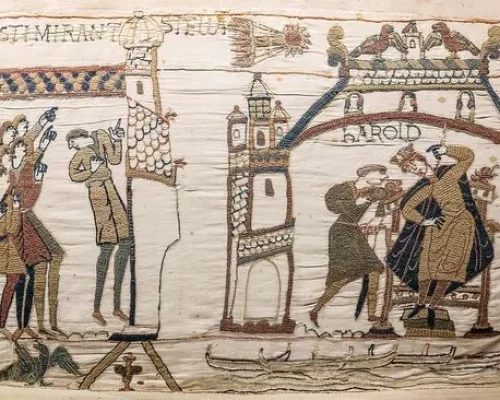 STI MIRANT STELLA
hAROLD